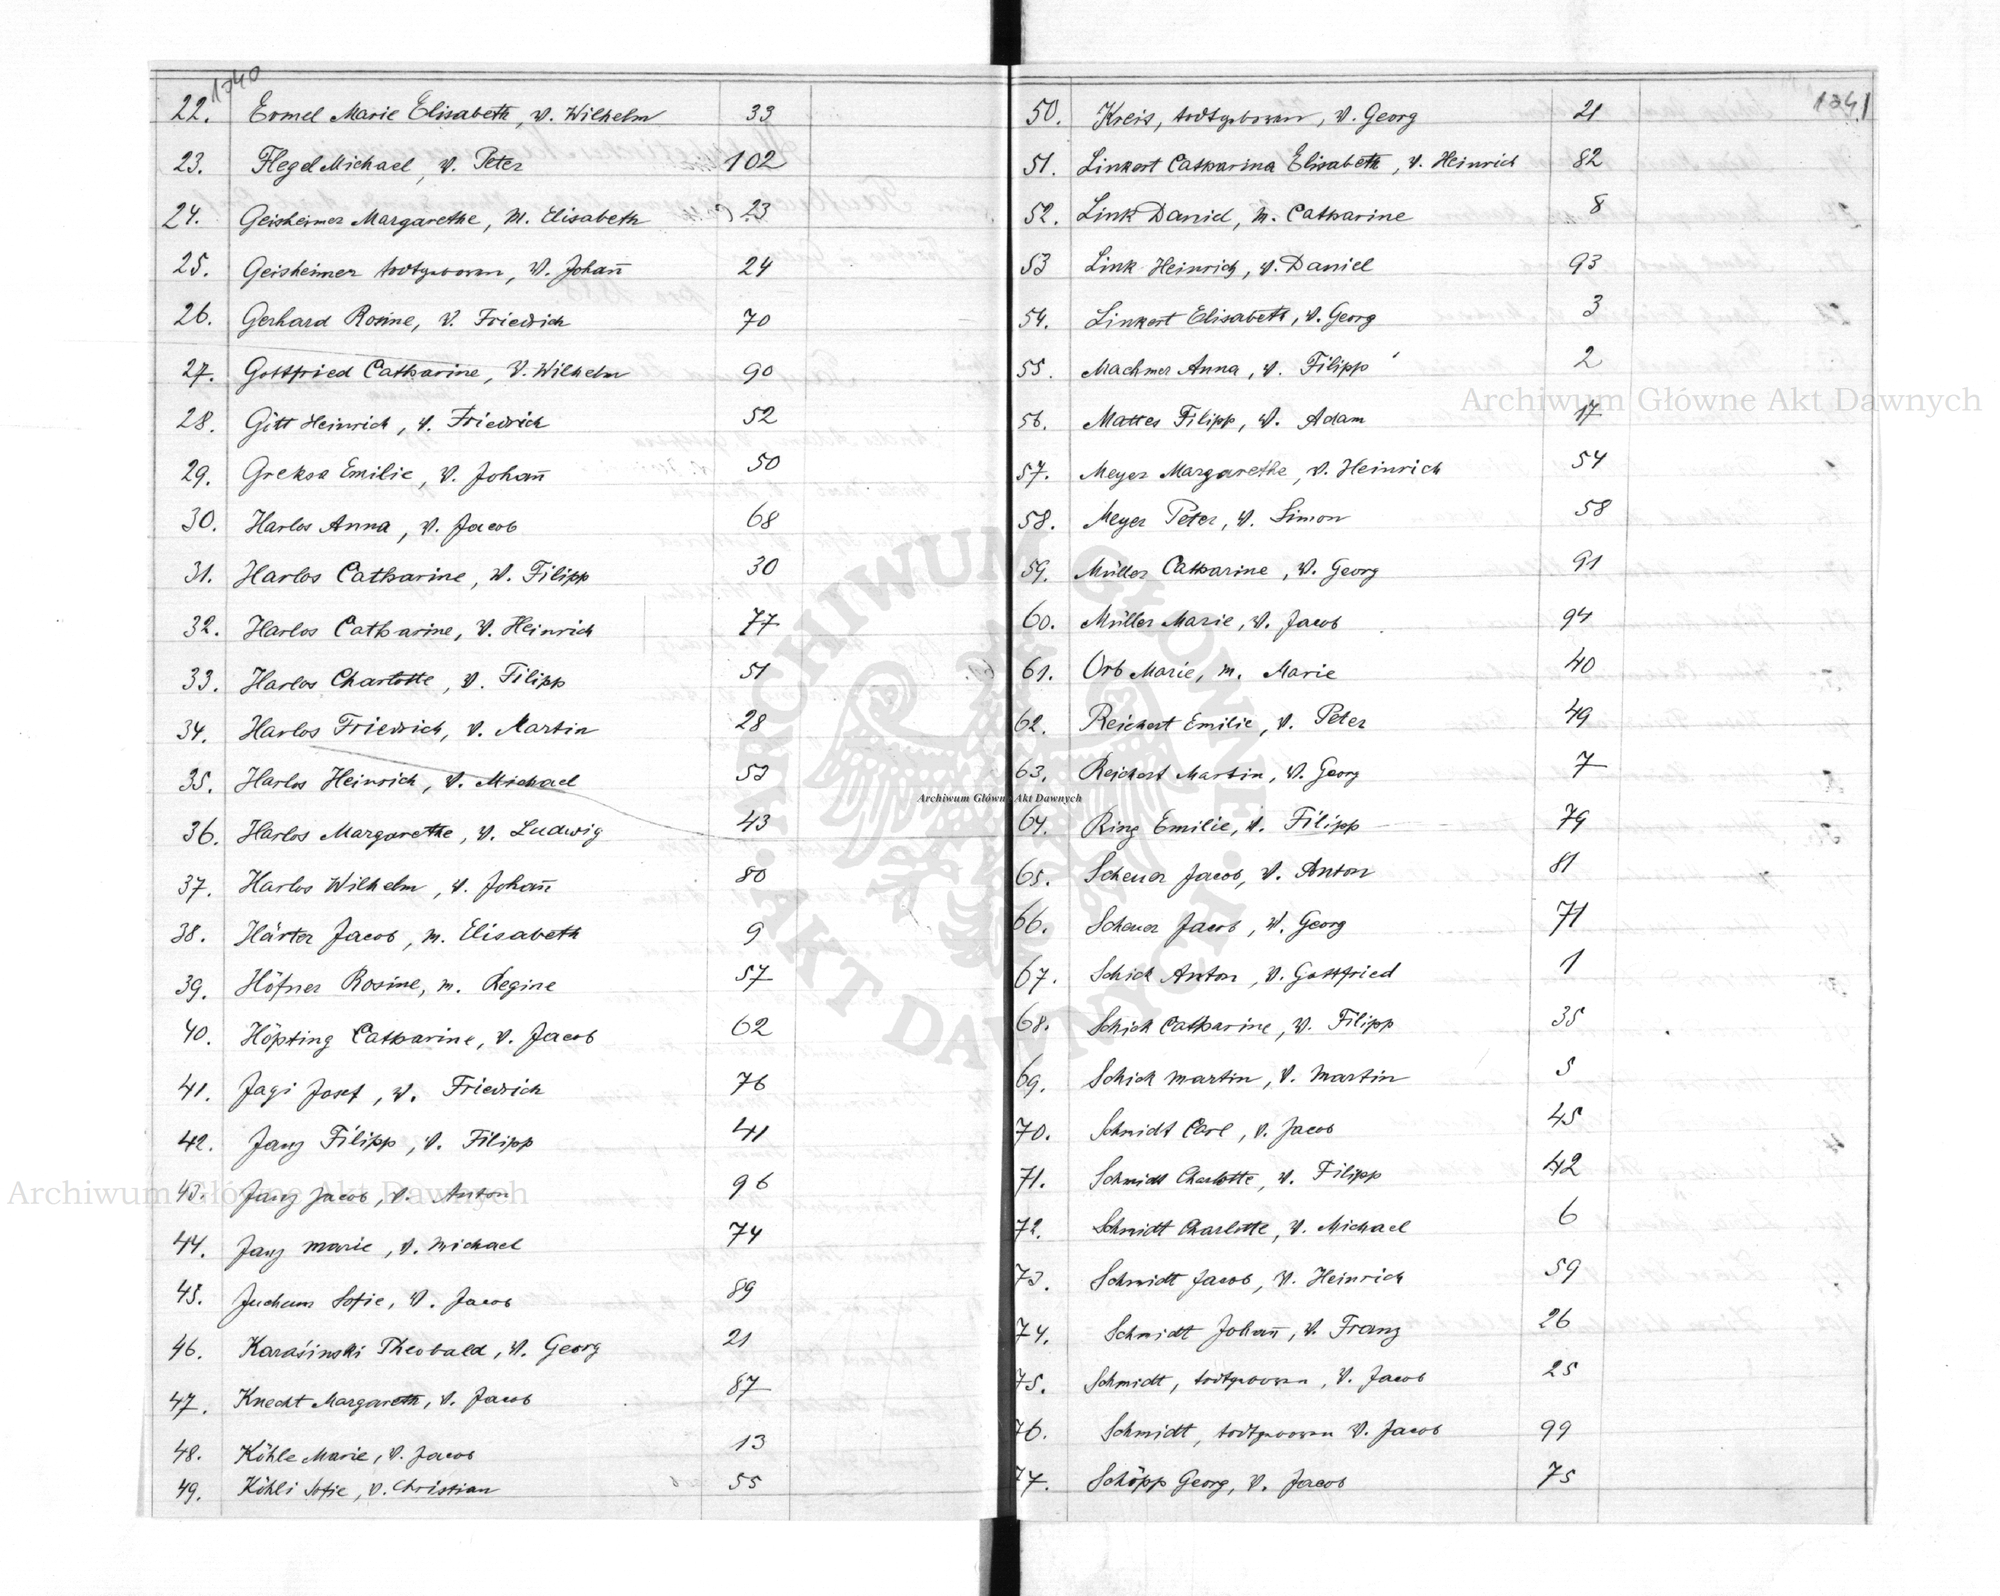 1340
22. Ermel Marie Elisabeth, v. Wilhelm 33
23. Flegel Michael, v. Peter 102
24. Geisheimer Margarethe, m. Elisabeth 23
25. Geisheimer todtgeboren, v. Johan̄ 24
26. Gerhard Rosine, v. Friedrich 70
27. Gottfried Catharine, v. Wilhelm 90
28. Gitt Heinrich, v. Friedrich 52
29. Greksa Emilie, v. Johan̄ 50
30. Harlos Anna, v. Jacob 68
31. Harlos Catharine, v. Filipp 30
32. Harlos Catharine, v. Heinrich 77
33. Harlos Charlotte, v. Filipp 51
34. Harlos Friedrich, v. Martin 28
35. Harlos Heinrich, v. Michael 53
36. Harlos Margarethe, v. Ludwig 43
37. Harlos Wilhelm, v. Johan̄ 80
38. Härter Jacob, m. Elisabeth 9
39. Höfner Rosine, m. Regine 57
40. Höpfing Catharine, v. Jacob 62
41. Jagi Josef, v. Friedrich 76
42. Janz Filipp, v. Filipp 41
43. Janz Jacob, v. Anton 96
44. Janz Marie, v. Michael 74
45. Juchum Sofie, v. Jacob 89
46. Karaśinski Theobald, v. Georg 21
47. Knecht Margareth, v. Jacob 87
48. Köhle Marie, v. Jacob 13
49. Köhli Sofie, v. Christian 55
1341
50. Kreis, todtgeboren, v. Georg 21
51. Linkert Catharina Elisabeth, v. Heinrich 82
52. Link Daniel, m. Catharine 8
53 Link Heinrich, v. Daniel 93
54. Linkert Elisabeth, v. Georg 3
55. Machmer Anna, v. Filipp 2
56. Mattes Filipp, v. Adam 17
57. Meyer Margarethe, v. Heinrich 54
58. Meyer Peter, v. Simon 58
59. Müller Catharine, v. Georg 91
60. Müller Marie, v. Jacob 94
61. Orb Marie, m. Marie 40
62. Reichert Emilie, v. Peter 49
63. Reichert Martin, v. Georg 7
64. Ring Emilie, v. Filipp 79
65. Scheuer Jacob, v. Anton 81
66. Scheuer Jacob, v. Georg 71
67. Schick Anton, v. Gottfried 1
68. Schick Catharine, v. Filipp 35
69. Schick Martin, v. Martin 5
70. Schmidt Carl, v. Jacob 45
71. Schmidt Charlotte, v. Filipp 42
72. Schmidt Charlotte, v. Michael 6
73. Schmidt Jacob, v. Heinrich 59
74. Schmidt Johan̄, v. Franz 26
75. Schmidt, todtgeboren, v. Jacob 25
76. Schmidt, todtgeboren v. Jacob 99
77. Schöpp Georg, v. Jacob 75
Archiwum Główne Akt Dawnych
Archiwum Główne Akt Dawnych
Archiwum Główne Akt Dawnych
ARCHIWUM GŁÓWNE AKT DAWNYCH